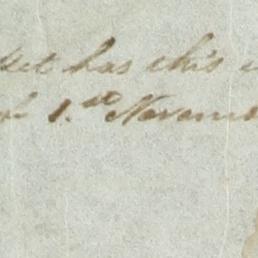 has this
1.st Novem